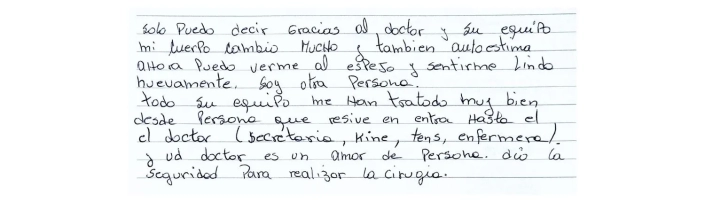 Solo Puedo decir Gracias al doctor y su equipo
mi cuerpo cambio MUCHO y tambien autoestima
aHora Puedo verme al espejo y sentirme Lindo
nuevamente. Soy otra Persona.
todo su equipo me Han tratado muy bien
desde Persona que resive en entra Hasta el
el doctor (secretaria, Kine, tens, enfermera).
y ud doctor es un amor de Persona. dio la
Seguridad Para realizar la cirugia.